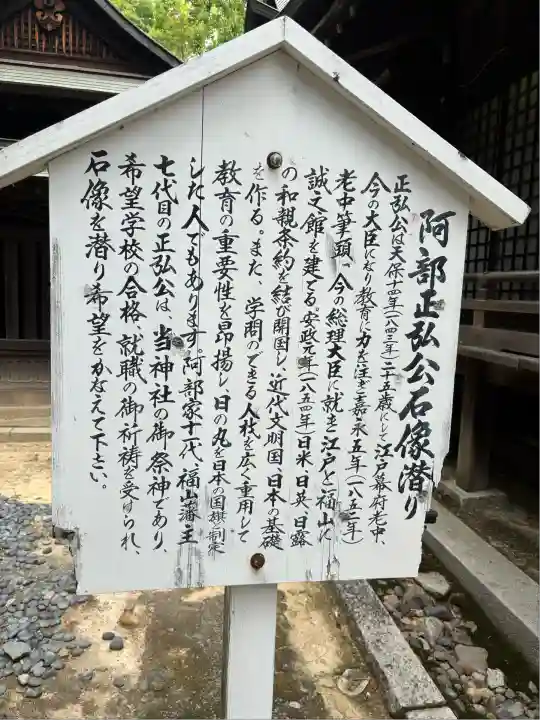 阿部正弘公石像潜り
正弘公は天保十四年(一八四三年)二五歳にして江戸幕府老中、
今の大臣になり教育に力を注ぎ嘉永五年(一八五二年)
老中筆頭、今の総理大臣に就き江戸と福山に
誠之館を建てる。安政元年(一八五四年)日米、日英、日露
の和親条約を結び開国し、近代文明国、日本の基礎
を作る。また、学問のできる人材を広く重用して
教育の重要性を昂揚し日の丸を日本の国旗に制定
した人でもあります。阿部家十一代、福山藩主
七代目の正弘公は、当神社の御祭神であり、
希望学校の合格、就職の御祈祷を受けられ、
石像を潜り希望をかなえて下さい。